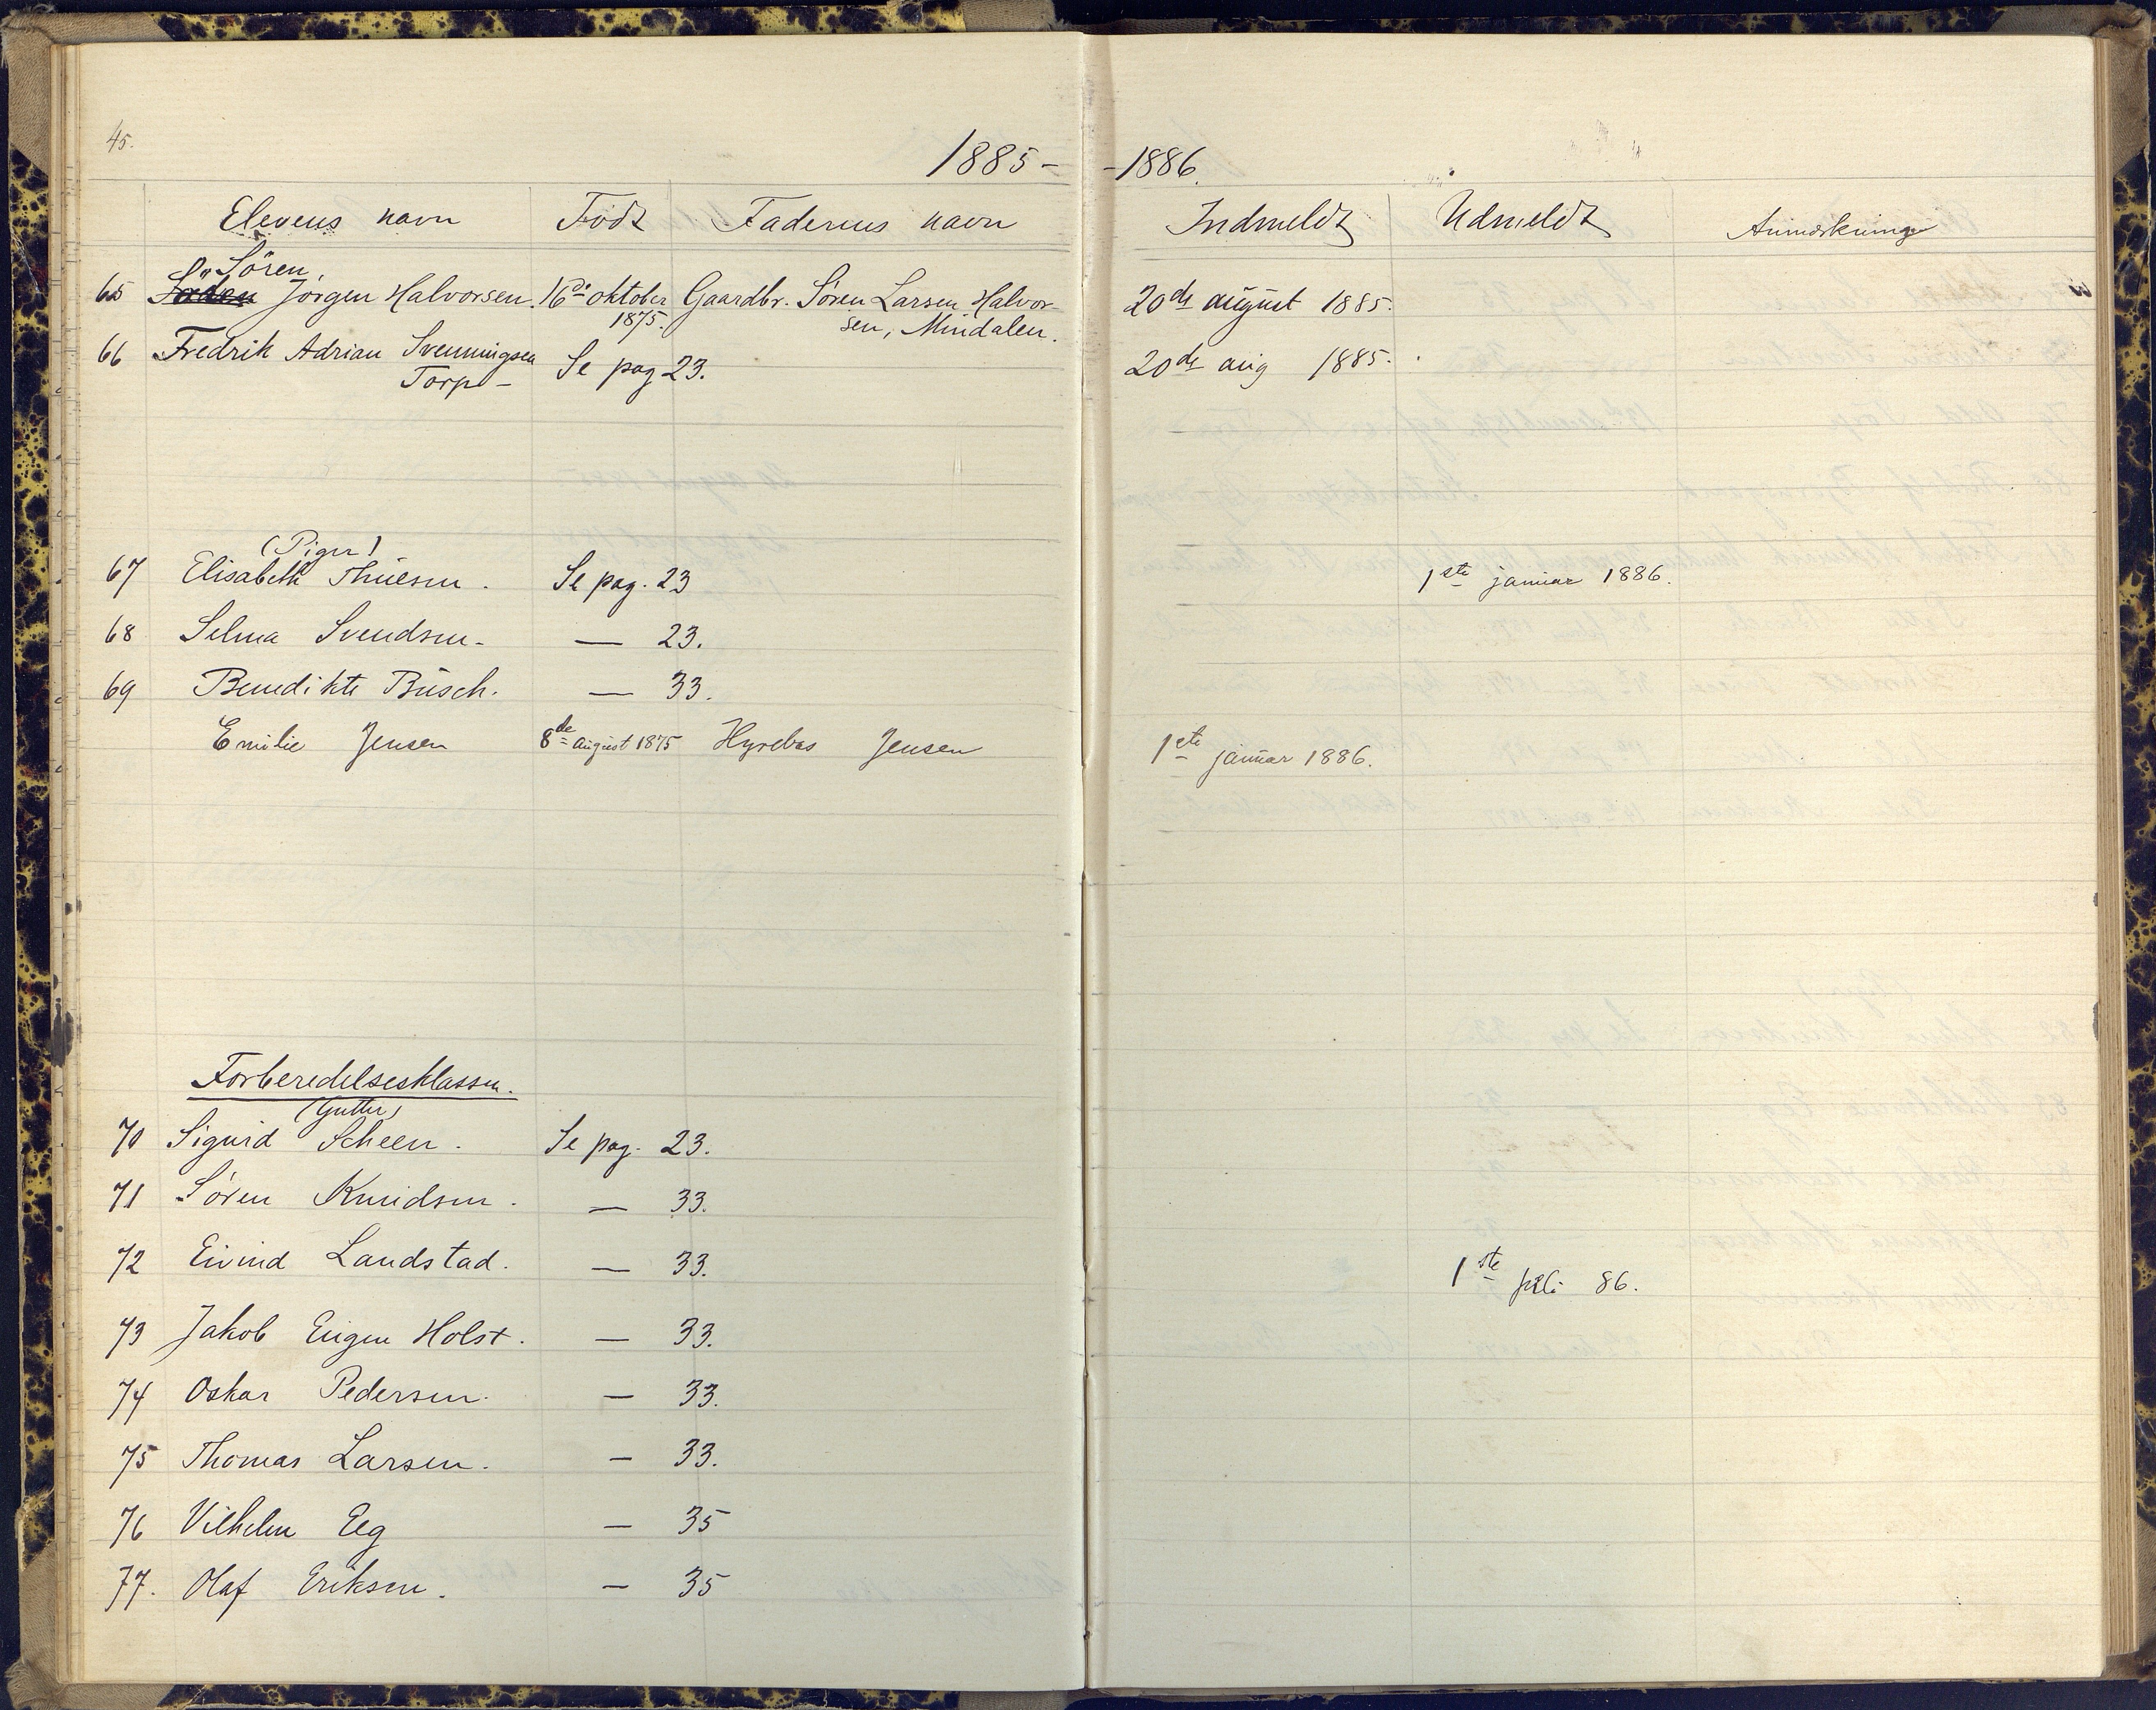 45.
1885 - - 1886.
Elevens navn Födt Faderens navn Indmeldt Udmeldt Anmærkning
Sören
65 Jörgen Halvorsen. 16de oktober Gaardbr. Sören Larsen Halvor- 20de august 1885.
1875. sen, Mindalen.
66 Fredrik Adrian Svenningsen Se pag 23. 20de aug 1885.
Torp -
(Piger)
67 Elisabeth Thuesen. Se pag. 23 1ste januar 1886.
68 Selma Svendsen - — 23.
69 Benedikte Busch. — 33.
Emilie Jensen 8de august 1875 Jensen 1ste januar 1886.
Forberedelsesklassen.
(Gutter)
70 Sigurd Scheen. Se pag. 23.
71 Sören Knudsen. — 33.
72 Eivind Landstad. — 33. 1ste juli 86.
73 Jakob Eugen Holst. — 33.
74 Oskar Pedersen. — 33.
75 Thomas Larsen. — 33.
76 Vilhelm Eeg — 35
77. Olaf Eriksen. — 35